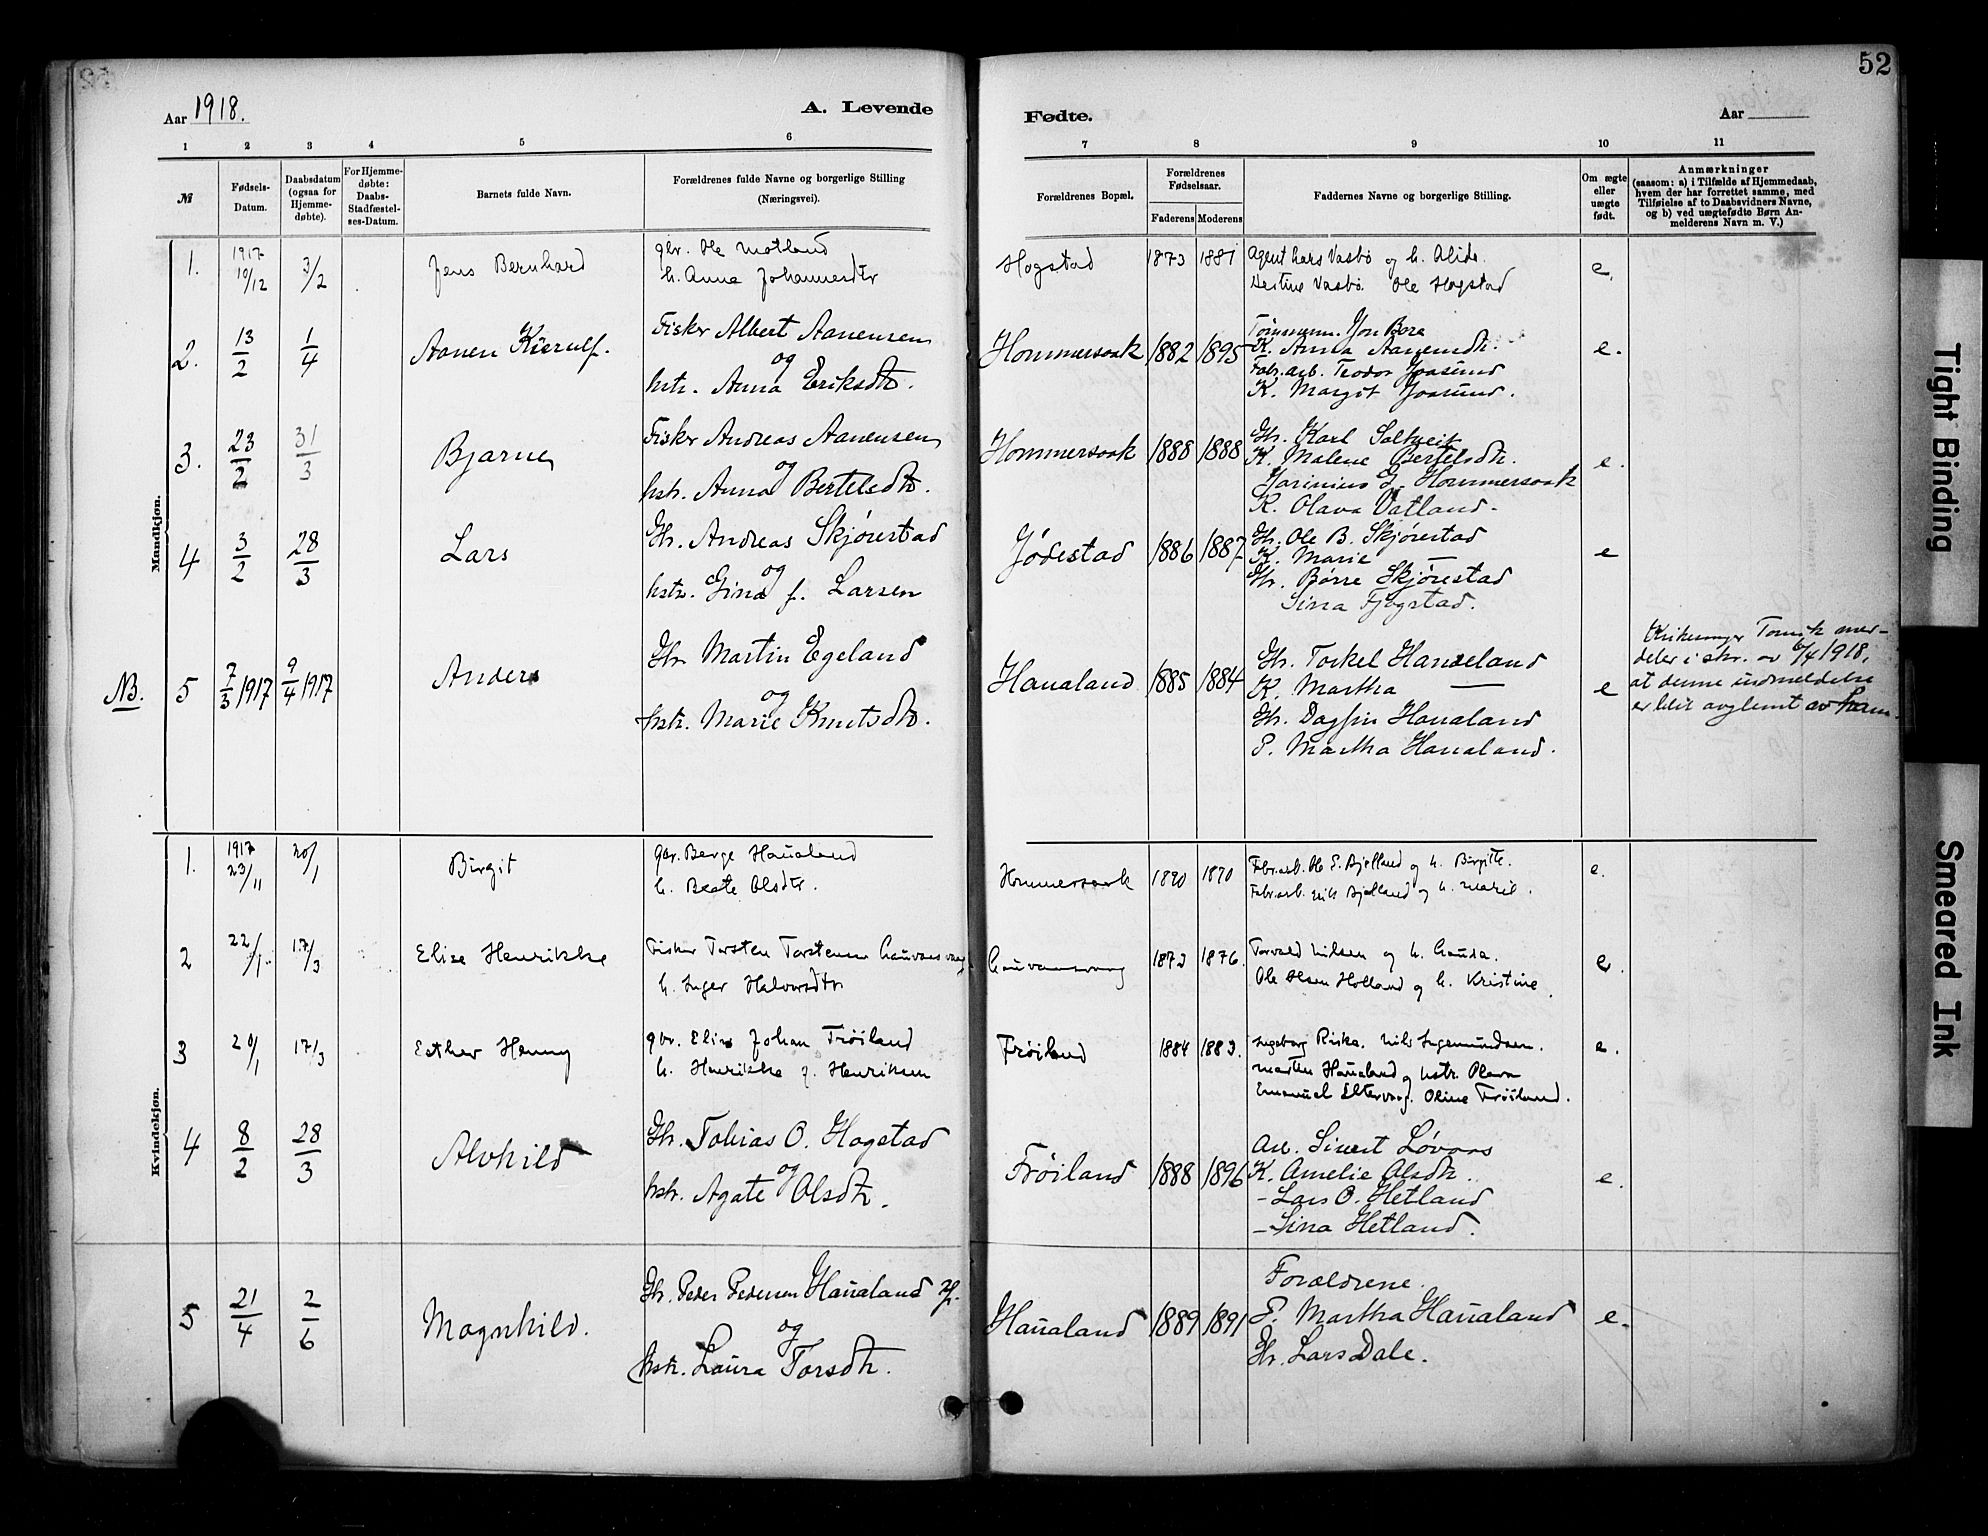 52
Aar 1918.
A. Levende
Fødte.
Aar
1 2 3 4 5 6 7 8 9 10 11
№
Fødsels-
Datum.
Daabsdatum
(ogsaa for
Hjemme-
døbte).
For Hjemme-
døbte:
Daabs-
Stadfæstel-
ses-Datum.
Barnets fulde Navn.
Forældrenes fulde Navne og borgerlige Stilling
(Næringsvei).
Forældrenes Bopæl.
Forældrenes
Fødselsaar.
Faderens Moderens
Faddernes Navne og borgerlige Stilling.
Om ægte
eller
uægte
født.
Anmærkninger
(saasom: a) i Tilfælde af Hjemmedaab,
hvem der har forrettet samme, med
Tilføielse af to Daabsvidners Navne,
og b) ved uægtefødte Børn An-
melderens Navn m. V.)
Mandkjøn.
1. 1917 10/12 3/2 Jens Bernhard
gbr. Ole Motland
h. Anna Johannesdtr
Hogstad 1873 1881
Agent Lars Vasbø og h. Alide.
Vasbø Ole Hogstad
e.
2. 13/2 1/4 Aanen Kierulf.
Fisker Albert Aanensen
og
hstr. Anna Eriksdtr.
Hommersaak 1882 1895
Tømmerm. Jon Bore
K. Anna Aanensdtr.
Fabr.arb. Teodor Joasund
K. Margit Joasund.
e.
3. 23/2 31/3 Bjarne
Fisker Andreas Aanensen
og
hstr. Anna Bertelsdtr.
Hommersaak 1888 1888
Gbr. Karl Soltveit
K. Malene Bertelsdtr.
G. Hommersaak
K. Olava Vatland.
e.
4 3/2 28/3 Lars
Gbr. Andreas Skjørestad
og
hstr. Gina f. Larsen
Jødestad 1886 1887
Gbr. Ole B. Skjørestad
K. Marie —
Gbr. Børre Skjørestad
Sina Fjogstad.
e
NB. 5 7/3 1917 9/4 1917 Anders
Gbr Martin Egeland
og
hstr. Marie Knutsdtr.
Haualand 1885 1884
Gbr. Torkel Haneland
K. Martha —
Gbr. Dagfin Haualand
P. Martha Haualand.
e
Kirkesanger med-
deler i skr. av 6/4 1918,
at denne indmeldelse
er blit avglemt av ham.
Kvindekjøn.
1. 1917 23/11 20/1 Birgit
gbr. Berge Haualand
h. Beate Olsdtr.
Hommersaak 1890 1870
Fabr.arb. Ole E. Bjelland og h. Birgitte.
Fabr.arb. Nils Bjelland og h. Marie.
e.
2 22/1 17/3 Elise Henrikke
Fisker Torsten Torstensen
h. Inger Halvorsdtr
1873 1876.
Torvald Nilsen og h.
Ole Olsen Holland og h. Kristine.
e.
3 20/1 17/3 Esther Henny
gbr. Elias Johan Frøiland
h. Henrikke f. Henriksen
Frøiland 1884 1883.
Ingeborg Riska. Nils Ingemundsen.
Martin Haualand og hstr. Olava
Emanuel Eltervaag. Oline Frøiland.
e.
4 8/2 28/3 Alvhild
Gbr. Tobias O. Hogstad
og
hstr. Agate Olsdtr.
Frøiland 1888 1896
Arb. Sivert Løvaas
K. Amelie Olsdtr.
- Lars O. Hetland
- Sina Hetland.
e.
5 21/4 2/6 Magnhild.
Gbr. Peder Pedersen Haualand
og
hstr. Laura Torsdtr.
Haualand 1889 1891
Forældrene.
P. Martha Haualand
Gbr. Lars Dale.
e.
Tight Binding
Smeared Ink